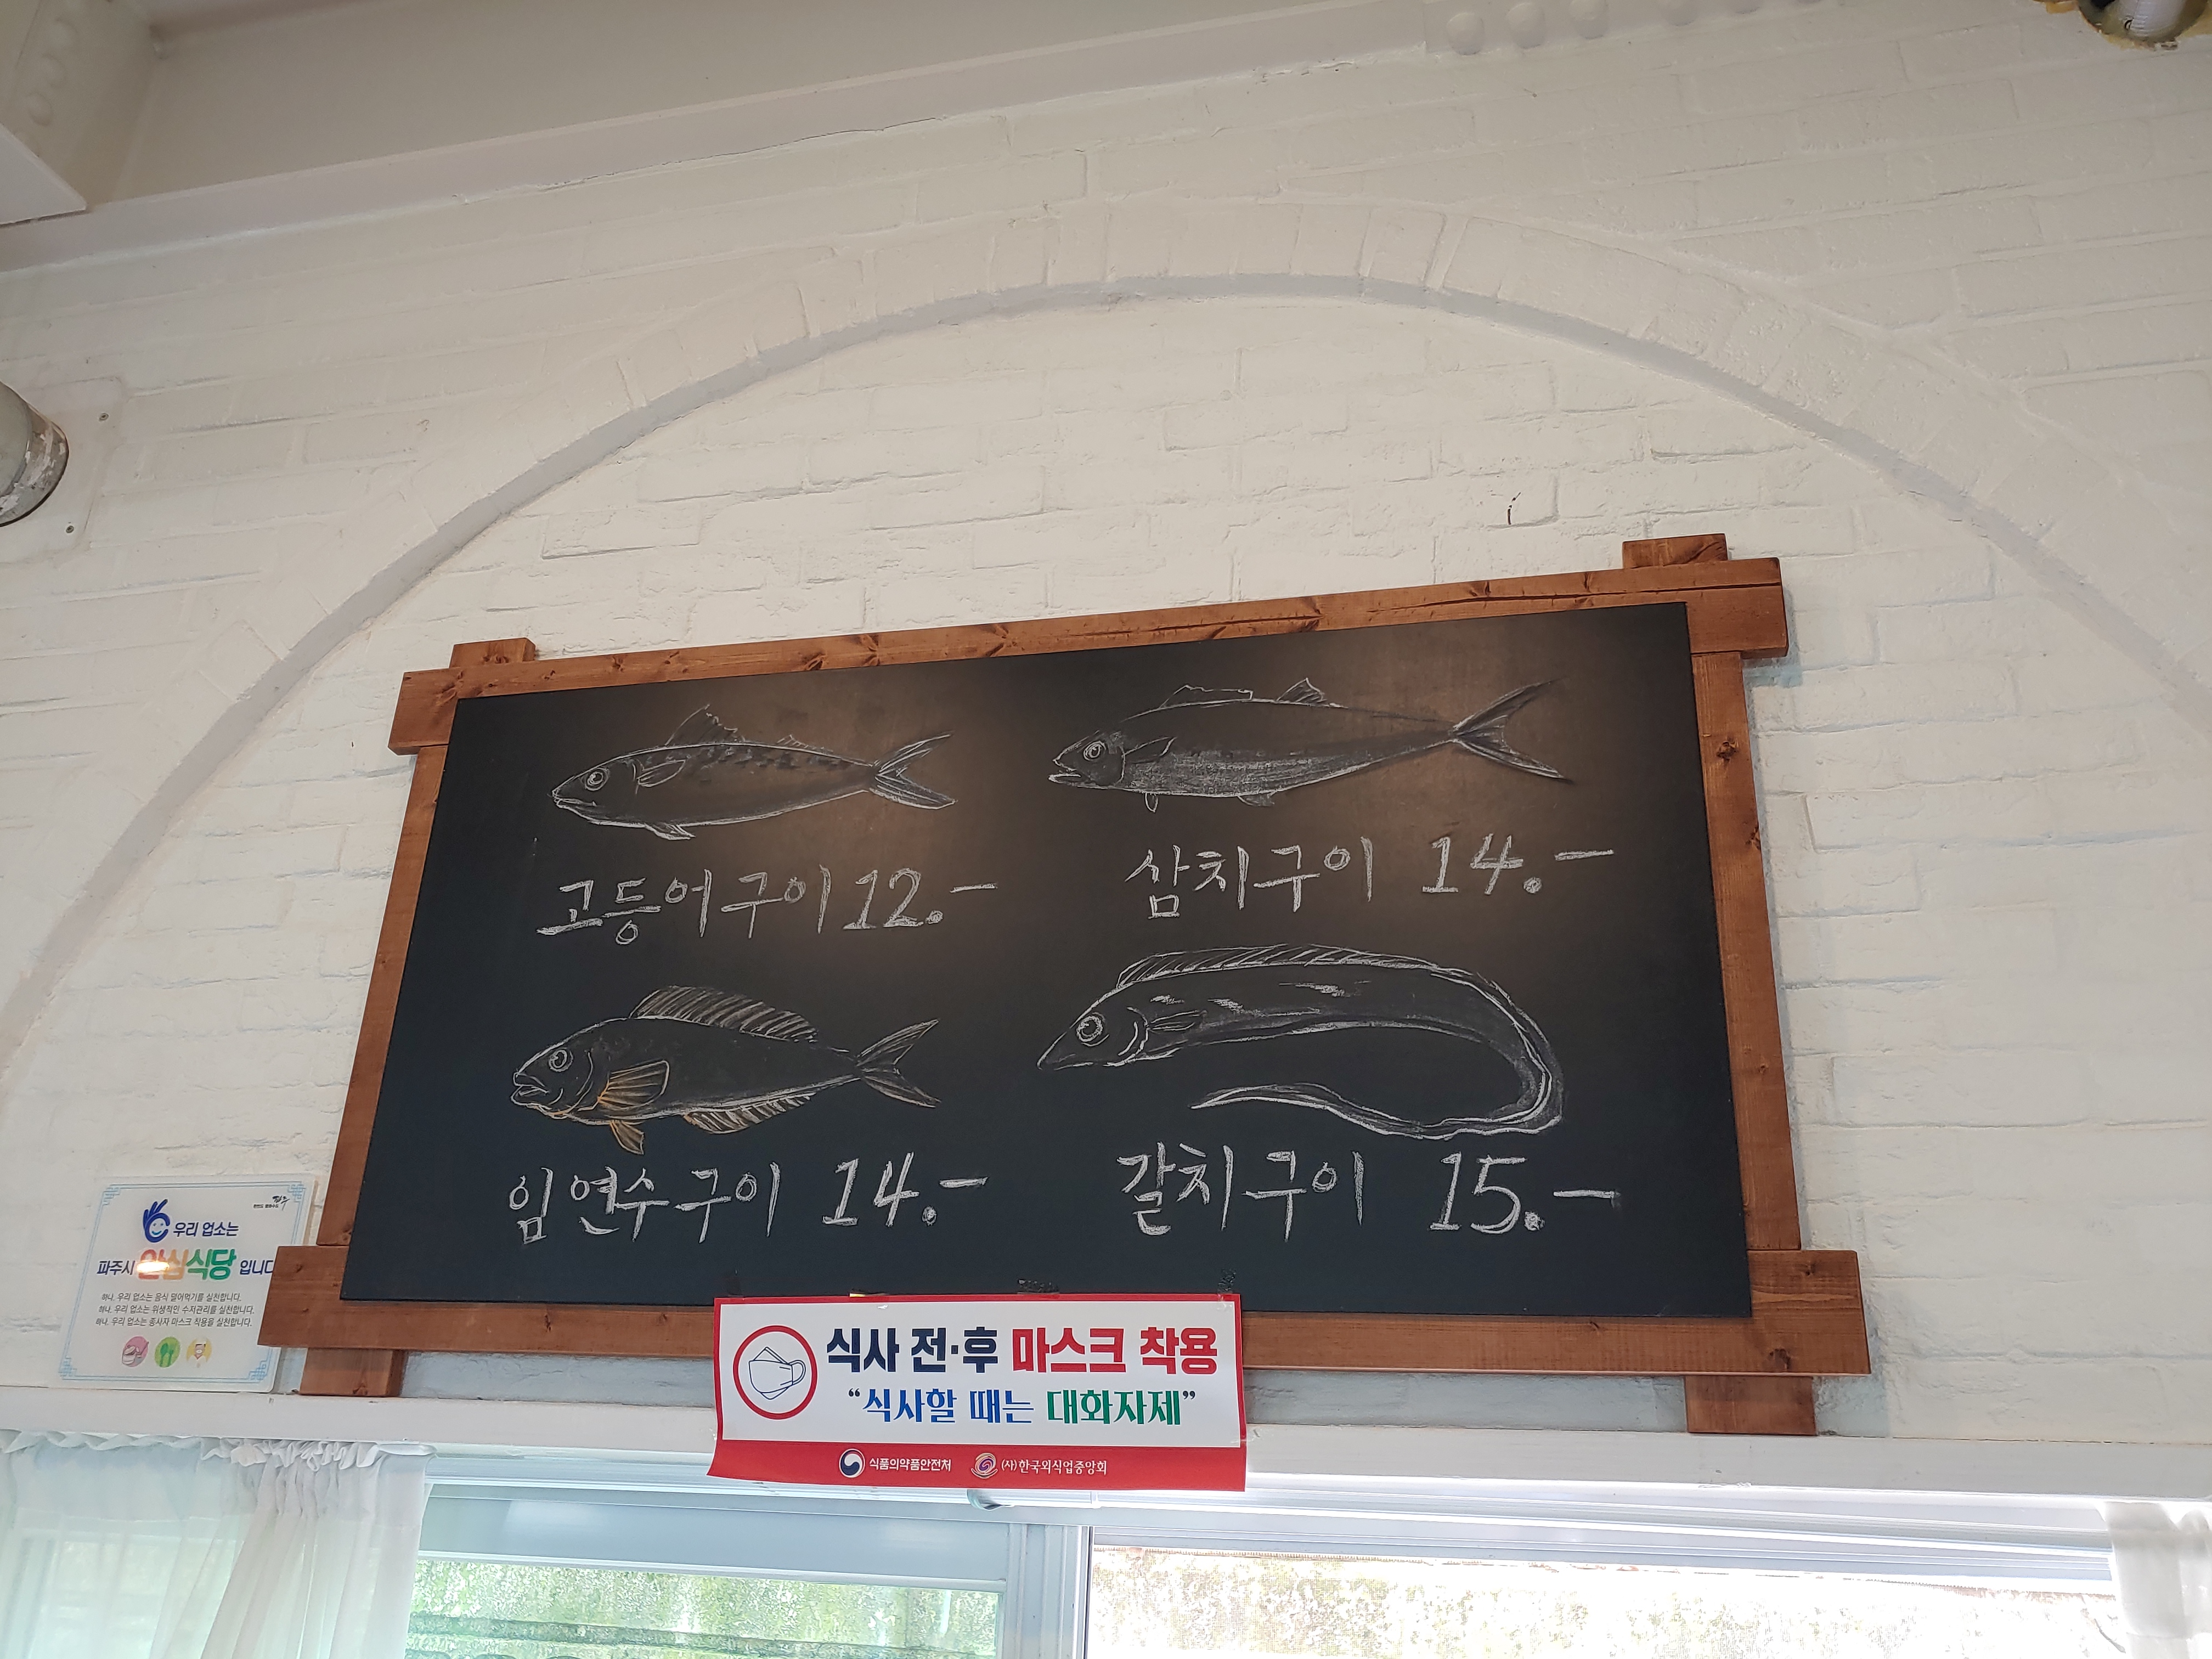 고등어구이 12.-
삼치구이 14.-
임연수구이 14.-
갈치구이 15.-
우리 업소는
파주시 안심식당 입니다
하나. 우리 업소는 음식 덜어먹기를 실천합니다.
하나. 우리 업소는 위생적인 수저관리를 실천합니다.
하나. 우리 업소는 종사자 마스크 착용을 실천합니다.
식사 전·후 마스크 착용
“식사할 때는 대화자제”
식품의약품안전처 (사)한국외식업중앙회